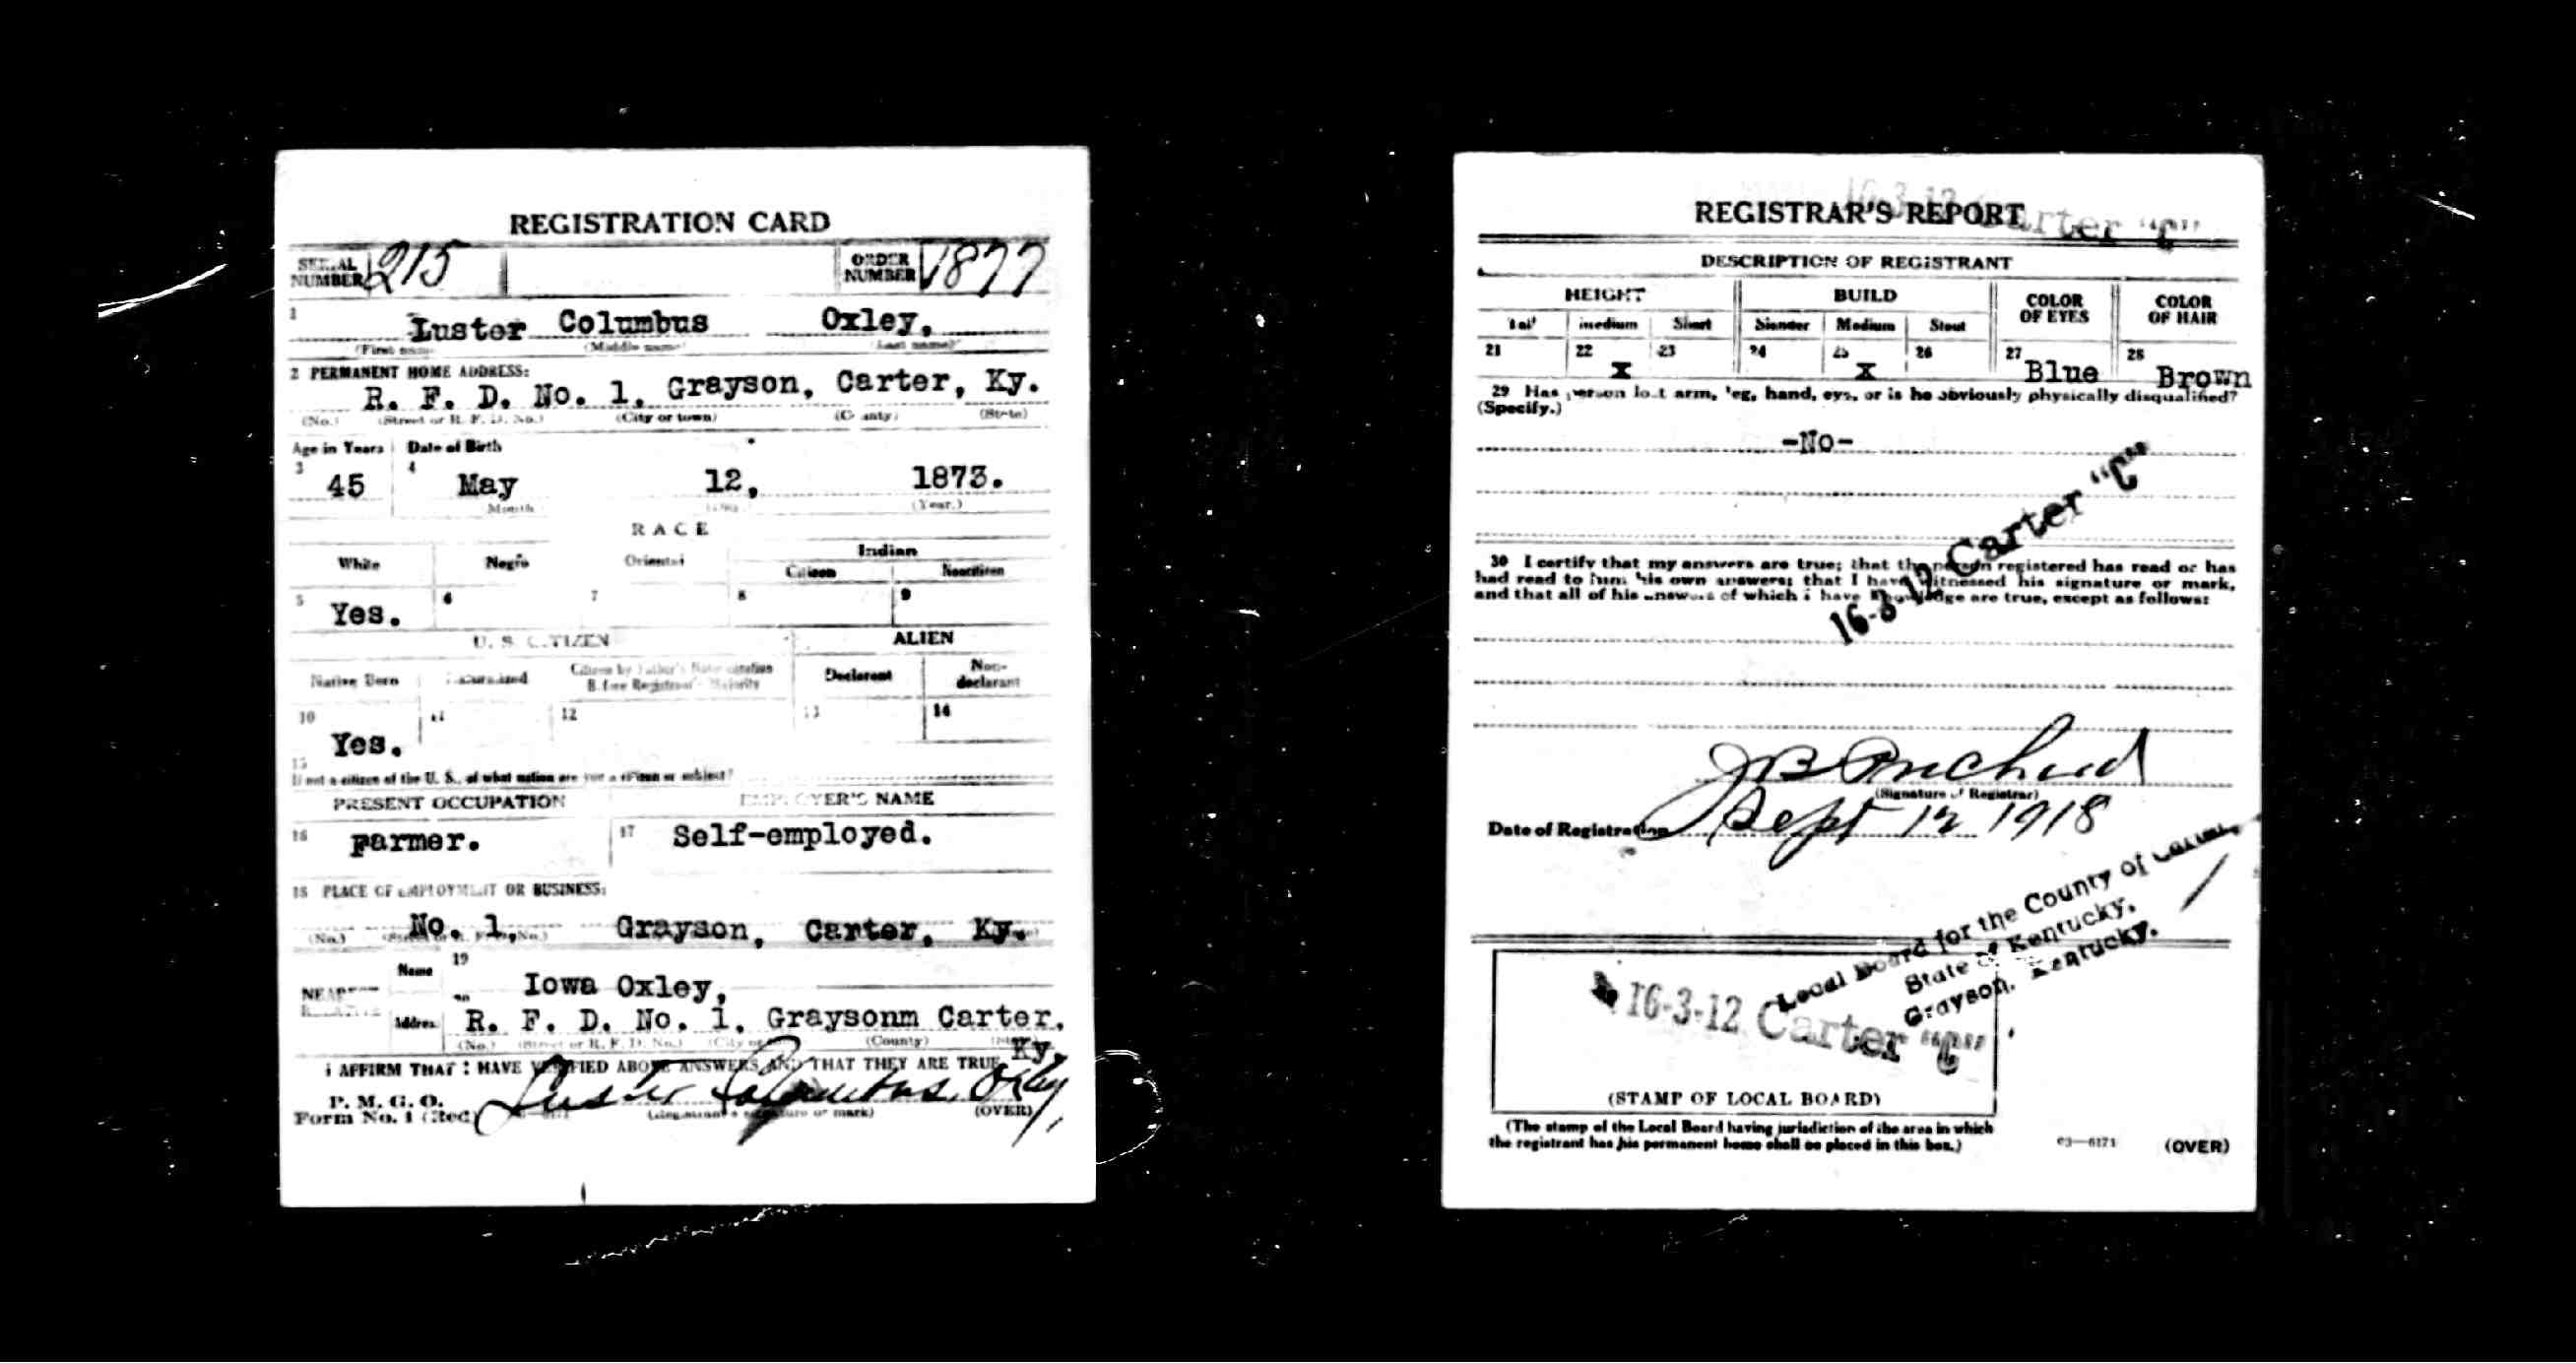 REGISTRATION CARD
SERIAL NUMBER 215 ORDER NUMBER 1877
1 Luster Columbus Oxley,
(First name) (Middle name) (Last name)
2 PERMANENT HOME ADDRESS:
R. F. D. No. 1, Grayson, Carter, Ky.
(No.) (Street or R. F. D. No.) (City or town) (County) (State)
Age in Years Date of Birth
3 45 4 May 12, 1873.
Month (Day.) (Year.)
RACE
White Negro Oriental Indian
Citizen Noncitizen
5 Yes. 6 7 8 9
U. S. CITIZEN ALIEN
Native Born Naturalized Citizen by Father's Naturalization Before Registrant's Majority Declarant Non-declarant
10 Yes. 11 12 13 14
15 If not a citizen of the U. S., of what nation are you a citizen or subject?
PRESENT OCCUPATION EMPLOYER'S NAME
16 Farmer. 17 Self-employed.
18 PLACE OF EMPLOYMENT OR BUSINESS:
No. 1, Grayson, Carter, Ky.
(No.) (Street or R. F. D. No.)
NEAREST RELATIVE Name 19 Iowa Oxley,
Address 20 R. F. D. No. 1, Graysonm Carter, Ky.
(No.) (Street or R. F. D. No.) (City or (County)
I AFFIRM THAT I HAVE VERIFIED ABOVE ANSWERS AND THAT THEY ARE TRUE
P. M. G. O.
Form No. 1 (Red) Luster Columbus Oxley
(Registrant's signature or mark) (OVER)
16-3-12 Carter "C"
REGISTRAR'S REPORT
DESCRIPTION OF REGISTRANT
HEIGHT BUILD COLOR OF EYES COLOR OF HAIR
Tall Medium Short Slender Medium Stout
21 22 X 23 24 25 X 26 27 Blue 28 Brown
29 Has person lost arm, leg, hand, eye, or is he obviously physically disqualified?
(Specify.)
-No-
16-3-12 Carter "C"
30 I certify that my answers are true; that the person registered has read or has
had read to him his own answers; that I have witnessed his signature or mark,
and that all of his answers of which I have knowledge are true, except as follows:
J B Prichard
(Signature of Registrar)
Date of Registration Sept 12 1918
Local Board for the County of Carter,
State of Kentucky,
Grayson, Kentucky.
16-3-12 Carter "C"
(STAMP OF LOCAL BOARD)
(The stamp of the Local Board having jurisdiction of the area in which
the registrant has his permanent home shall be placed in this box.)
03-6171 (OVER)